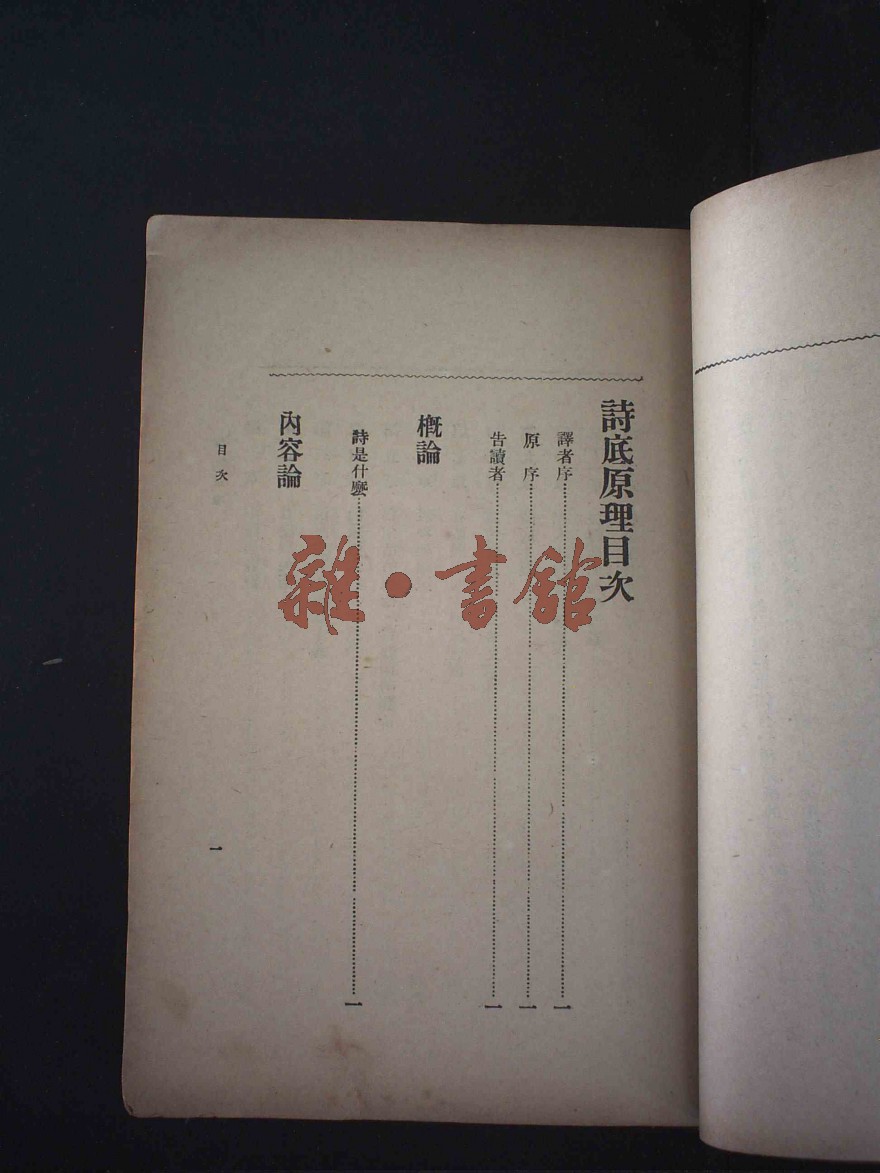 詩底原理目次
譯者序……一
原　序……一
告讀者……一
概論
詩是什麼……一
內容論
目次
一
雜·書館